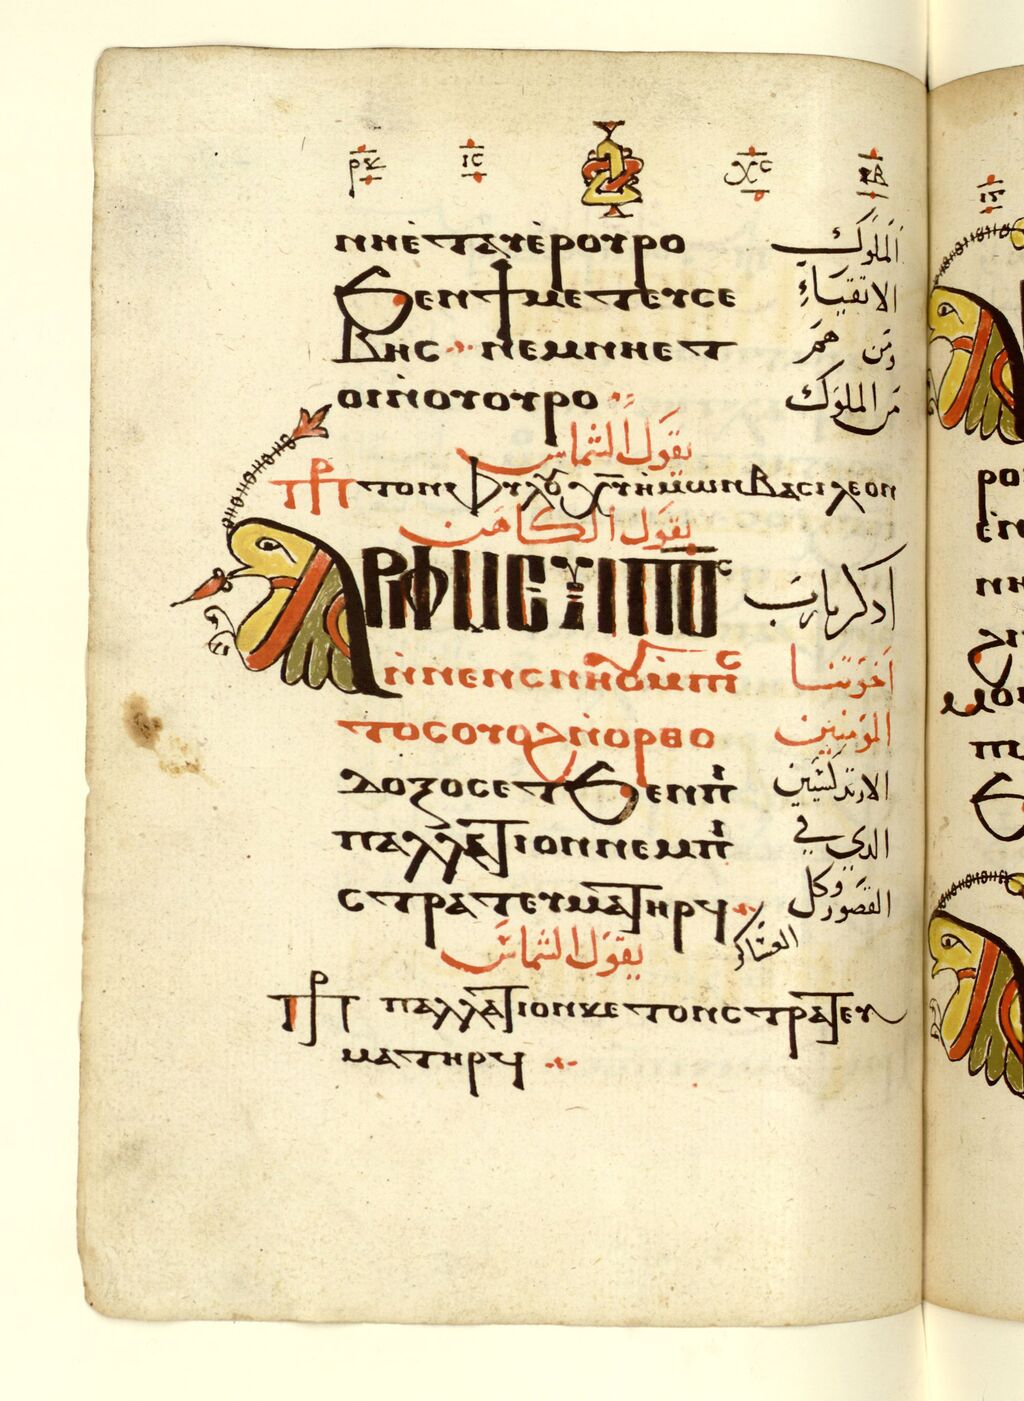 ⲓⲥ ⲭⲥ
ⲛⲏⲉ̇ⲧⲁⲩⲉ̇ⲣⲟⲩⲣⲟ الملوك
ϧⲉⲛϯⲙⲉⲧⲉⲩⲥⲉ الاتقياء
ⲃⲏⲥ ⲛⲉⲙⲛⲏⲉⲧ ومن هم
ⲟⲓⲛ̇ⲟⲩⲟⲩⲣⲟ من الملوك
يقول الشماس
ⲧⲱⲛ ⲃⲁⲥⲓⲗⲉⲟⲛ
يقول الكاهن
ⲁⲣⲓⲫⲙⲉⲩⲓ̀ⲡⲟ̅ⲥ̅ اذكر يارب
ⲛ̇ⲛⲉⲛⲥⲛⲏⲟⲩⲙ̇ⲡⲓⲥ اخوتنا
ⲧⲟⲥⲟⲩⲟϩⲛ̇ⲟⲣⲑⲟ المومنين
ⲇⲟⲝⲟⲥⲉⲧϧⲉⲛⲡⲓ الارتدكسيين
ⲡⲁⲗⲗⲁⲧⲓⲟⲛⲛⲉⲙⲡⲓ الدي في
ⲥⲧⲣⲁⲧⲉⲩⲙⲁⲧⲏⲣϥ القصور وكل
العساكر
يقول الشماس
ⲡⲁⲗⲗⲁⲧⲓⲟⲛⲕⲉⲧⲟⲛⲥⲧⲣⲁⲧⲉⲩ
ⲙⲁⲧⲏⲣϥ